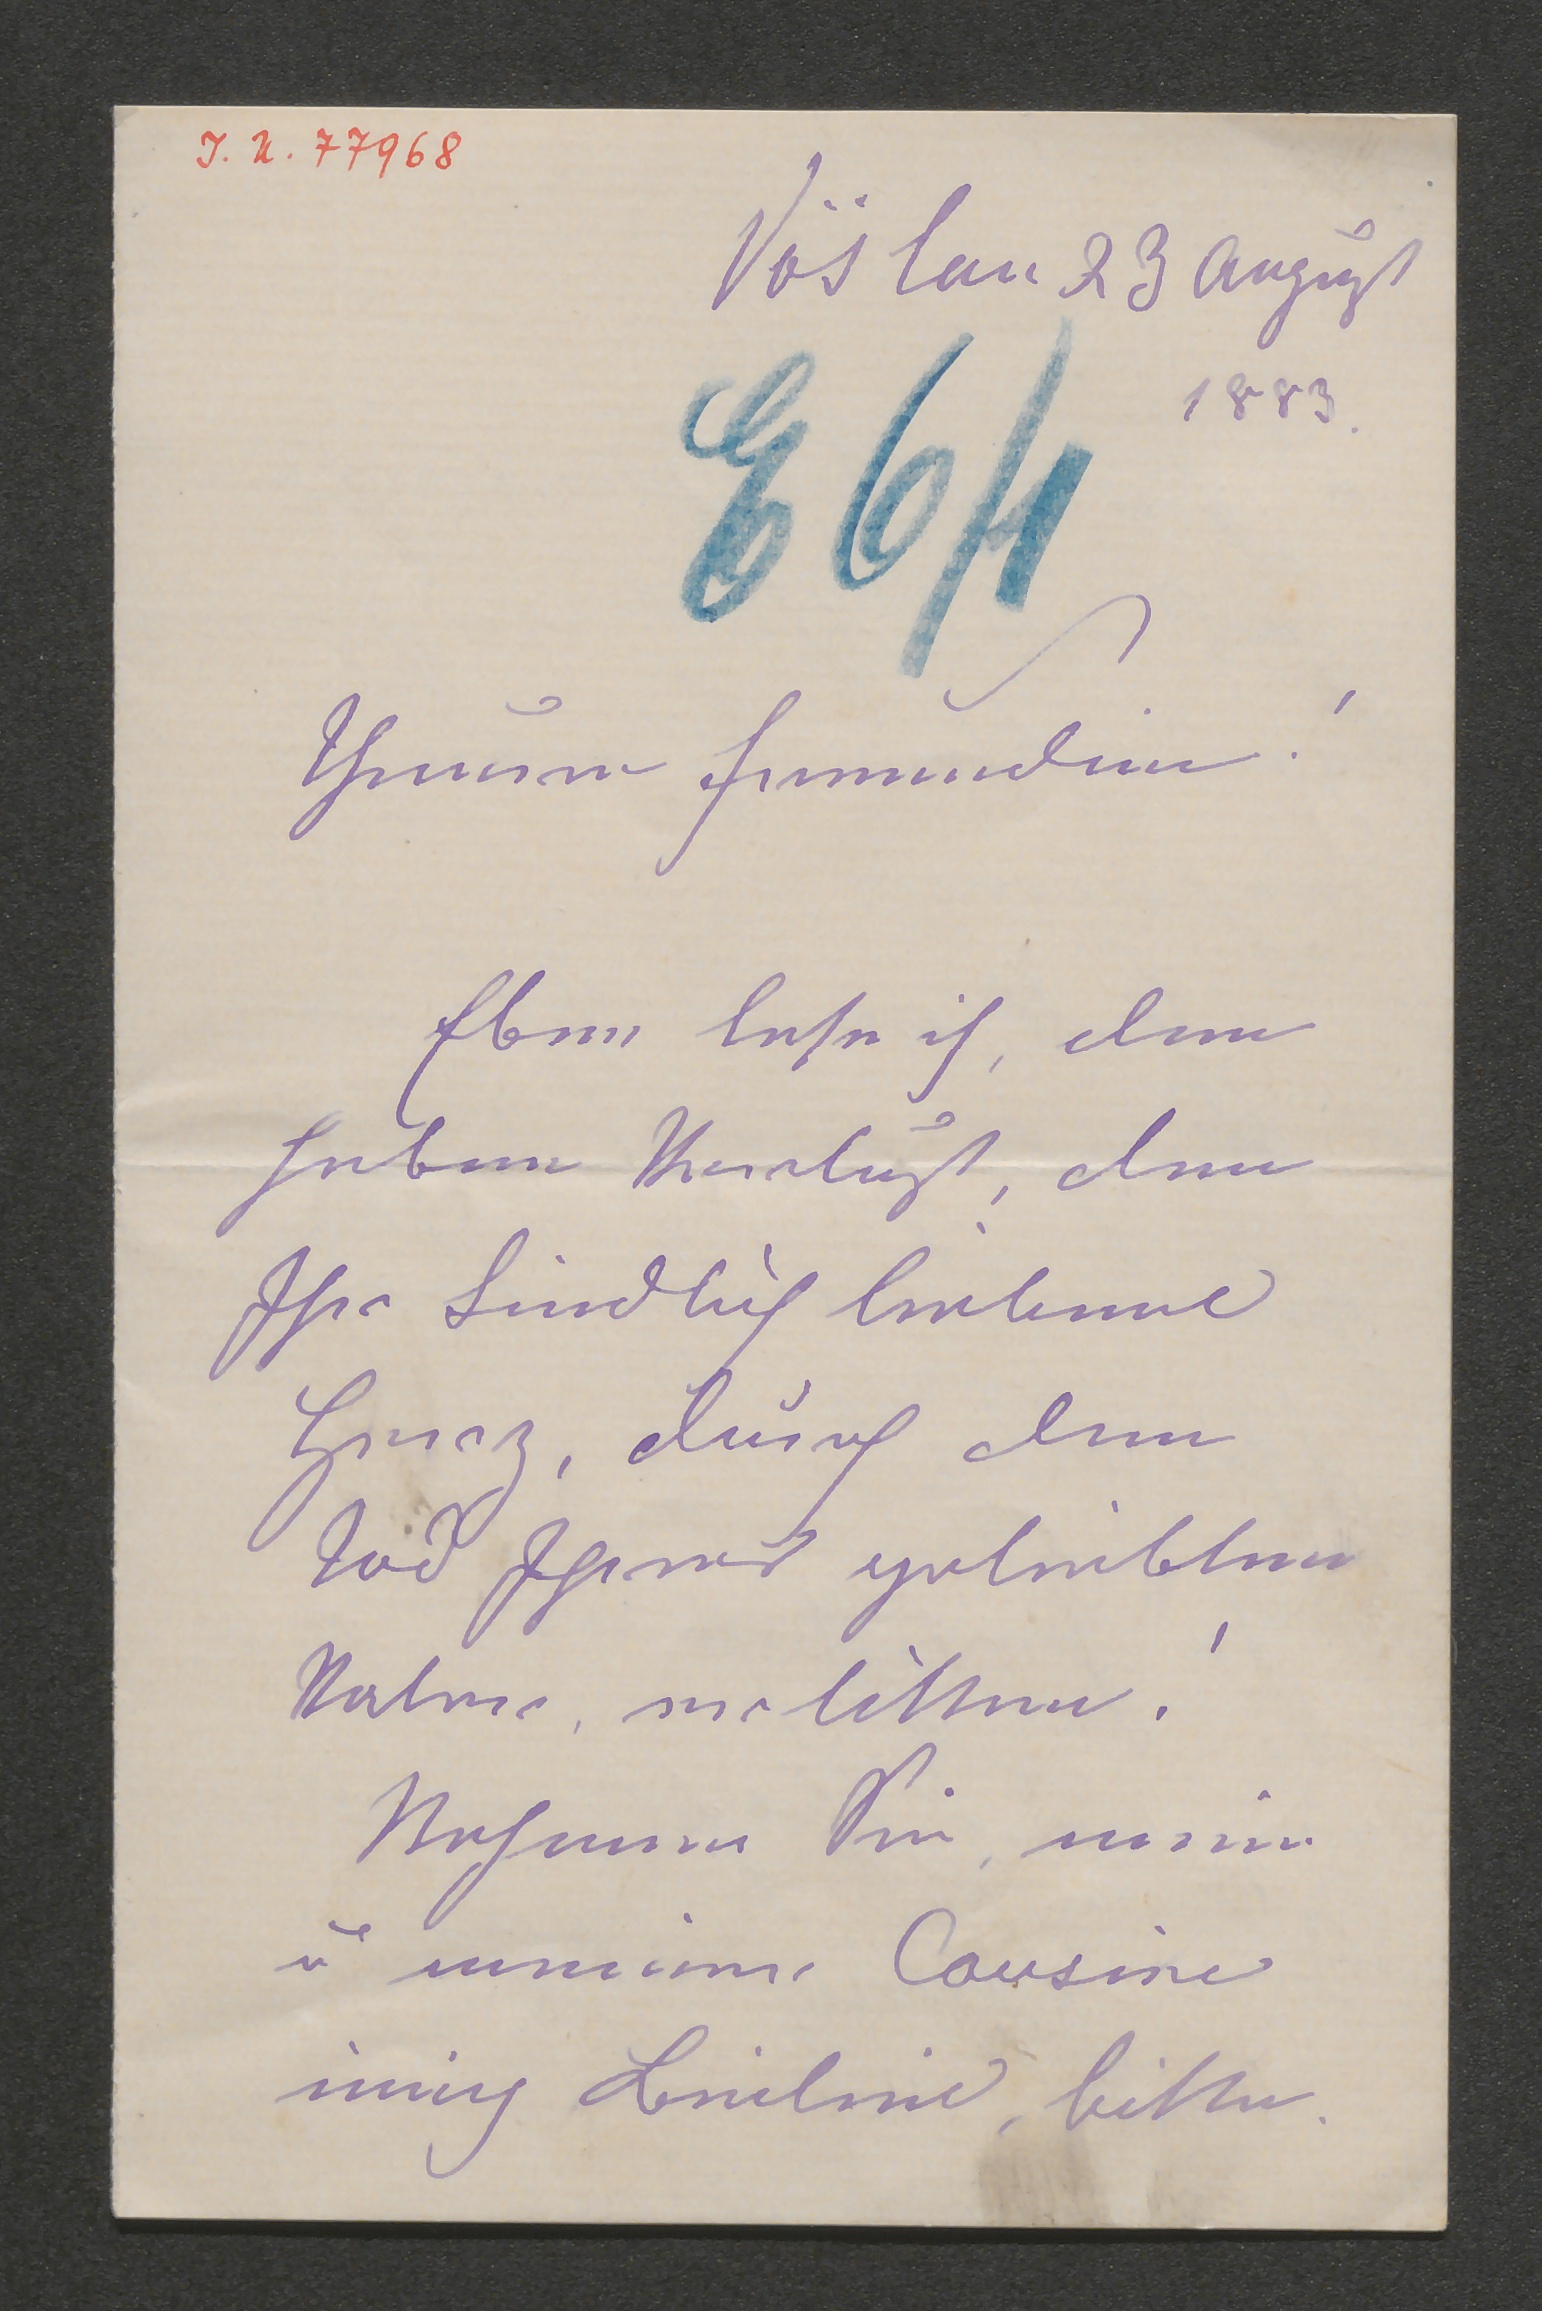 J. N. 77968
Vöslau 23 August
1883.
E 6/1
Theuere Freundin!
Eben lese ich, den
herben Verlust, den
Ihr kindlich liebend
Herz, durch den
Tod Ihres geliebten
Vaters, erlitten!
Nehmen Sie, mein
u meiner Cousine
innig Beileid, bitte.